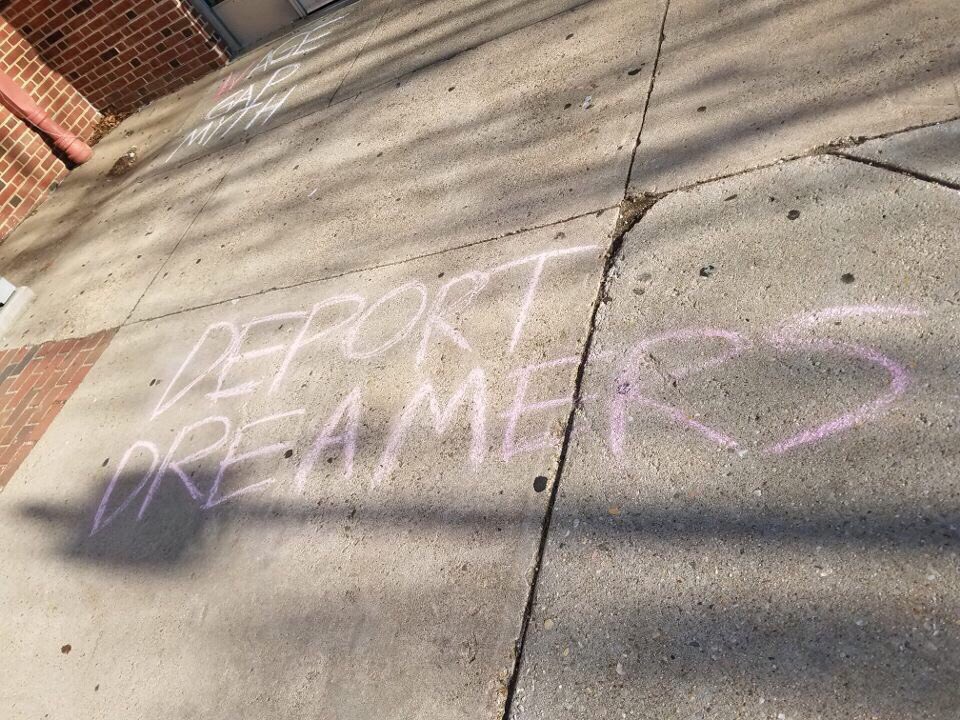 WAGE
GAP
MYTH
DEPORT
DREAMERS